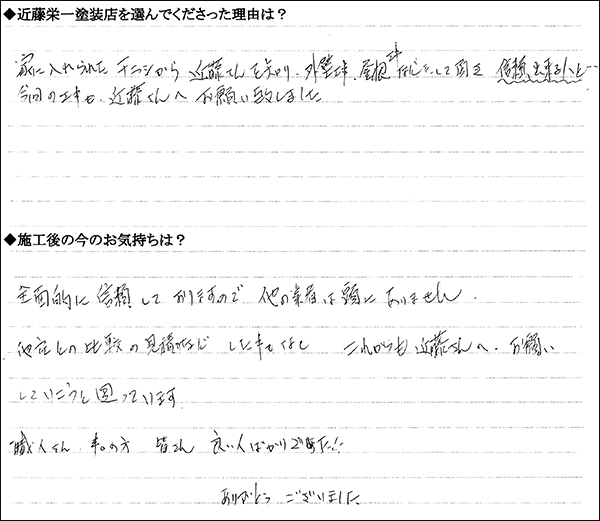 ◆近藤栄一塗装店を選んでくださった理由は？
家に入れられたチラシから近藤さんを知り、外壁工事、屋根工事などをして頂き信頼出来る人と…
今回の工事も、近藤さんへお願い致しました
◆施工後の今のお気持ちは？
全面的に信頼しておりますので他の業者は頭にありません.
他店との比較の見積りなどした事なし これからも近藤さんへ.お願い
していこうと思っています
職人さん.事ムの方 皆さん良い人ばかりでした!!
ありがとうございました